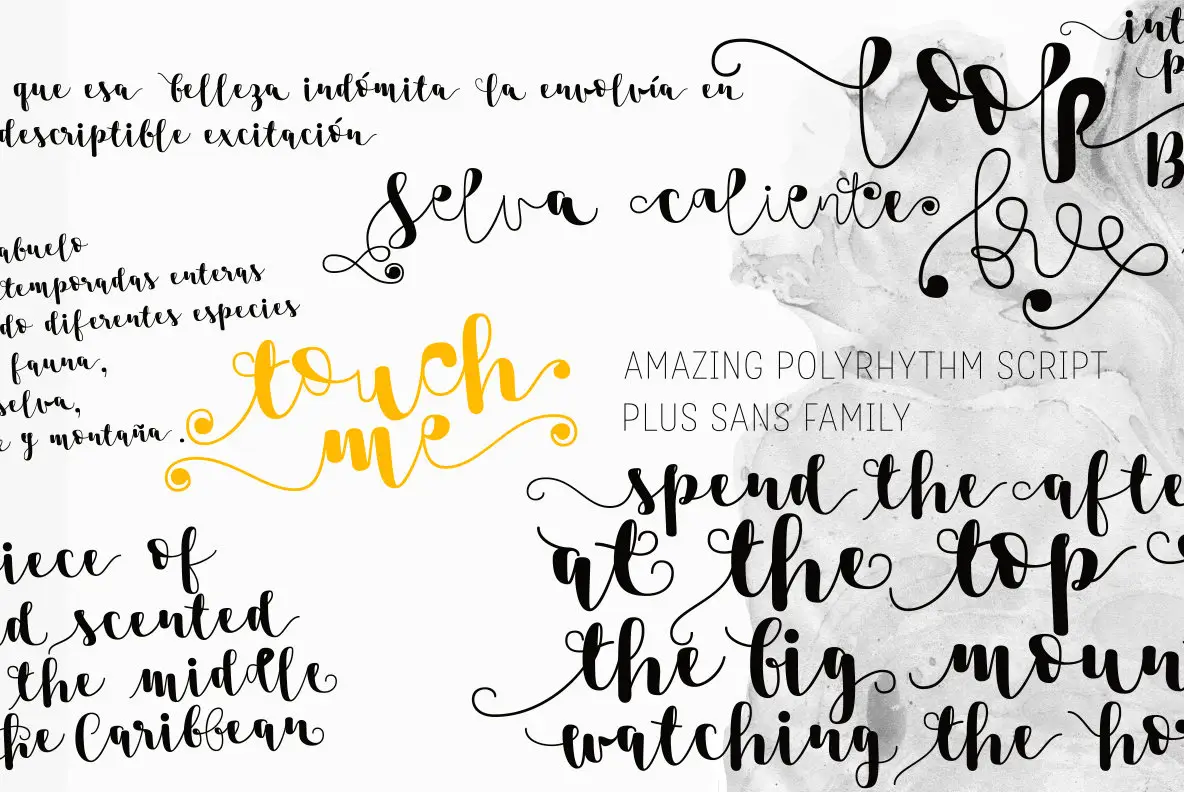 que esa belleza indómita la envolvía en
descriptible excitación
loop
int
p
B
selva caliente
bye
abuelo
temporadas enteras
do diferentes especies
fauna,
selva,
y montaña.
touch
me
AMAZING POLYRHYTHM SCRIPT
PLUS SANS FAMILY
spend the afte
at the top
the big moun
watching the ho
iece of
d scented
the middle
ke Caribbean